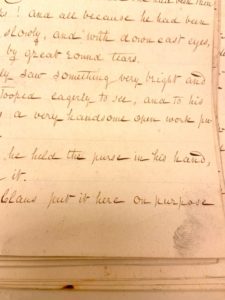 ! and all because he had been
slowly, and with down cast eyes,
by great round tears.
ly saw something very bright and
tooped eagerly to see, and to his
a very handsome open work pu
he held the purse in his hand,
it.
Claus put it here on purpose